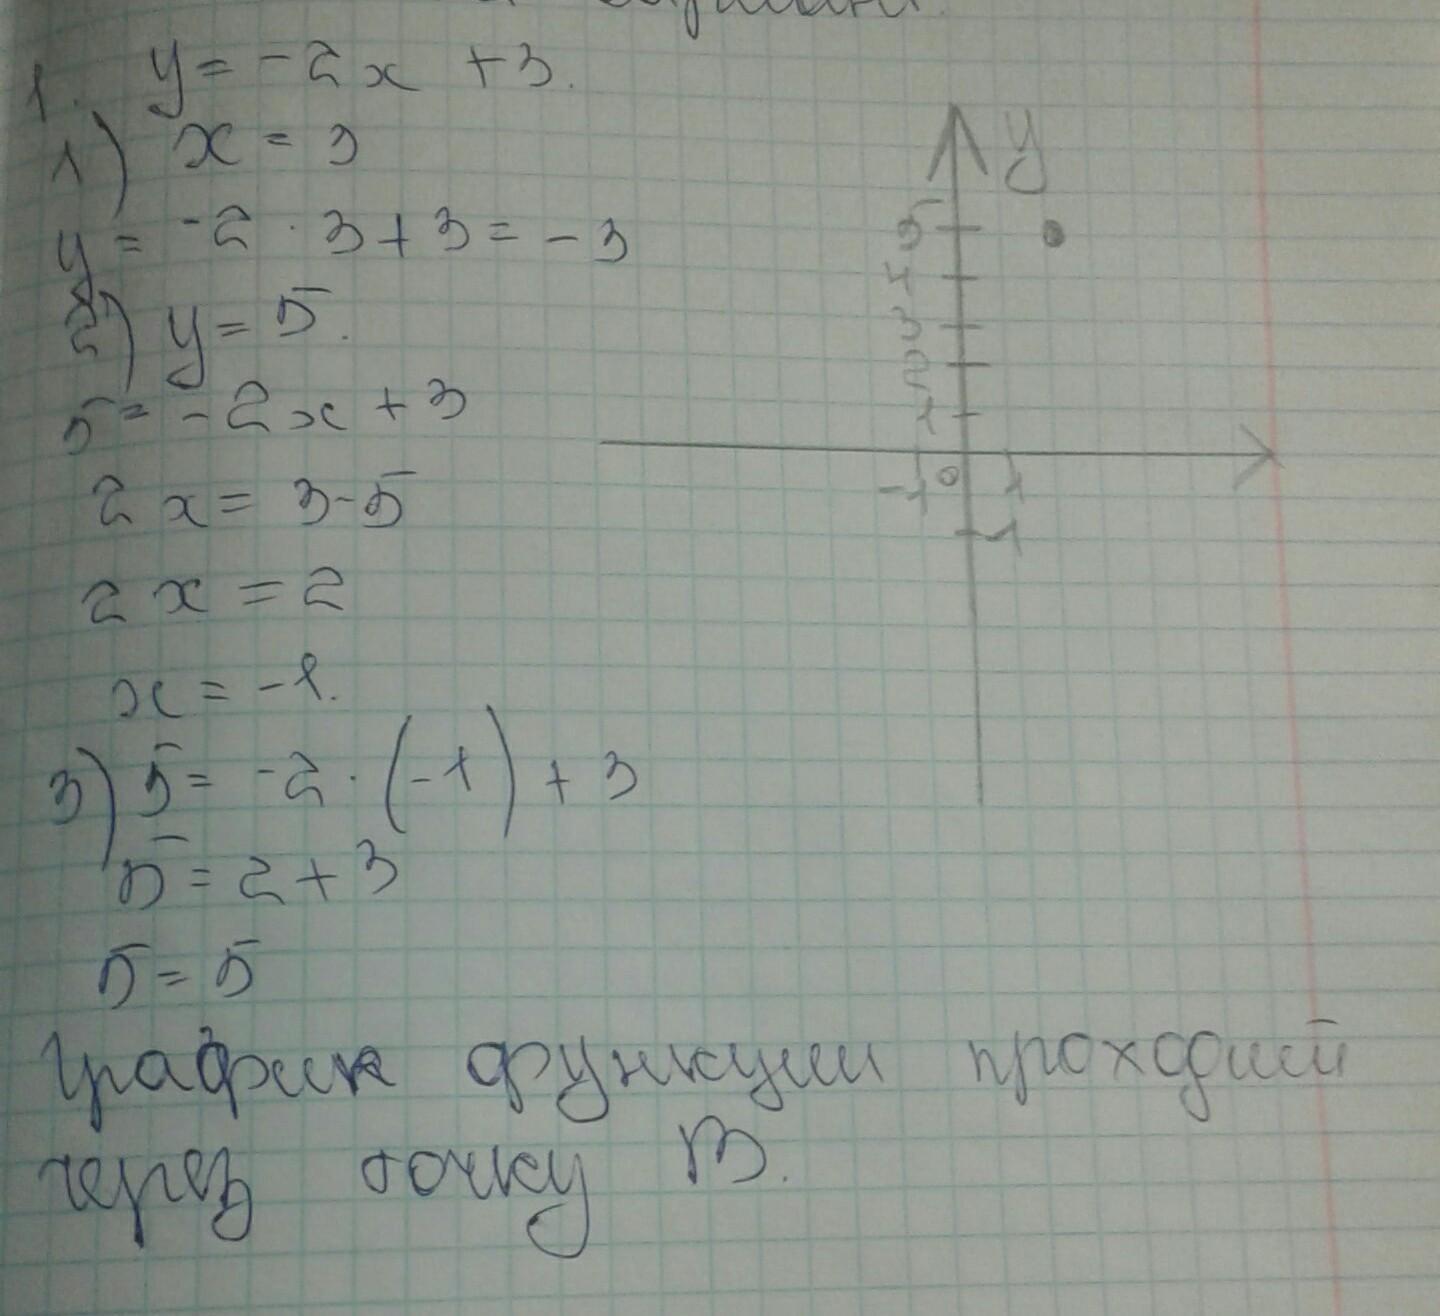 1. y = -2x + 3.
1) x = 3
y = -2 · 3 + 3 = -3
2) y = 5.
5 = -2x + 3
2x = 3-5
2x = 2
x = -1.
3) 5 = -2 · (-1) + 3
5 = 2 + 3
5 = 5
График функции проходит
через точку В.
y
5
4
3
2
1
-1 0 1
-1